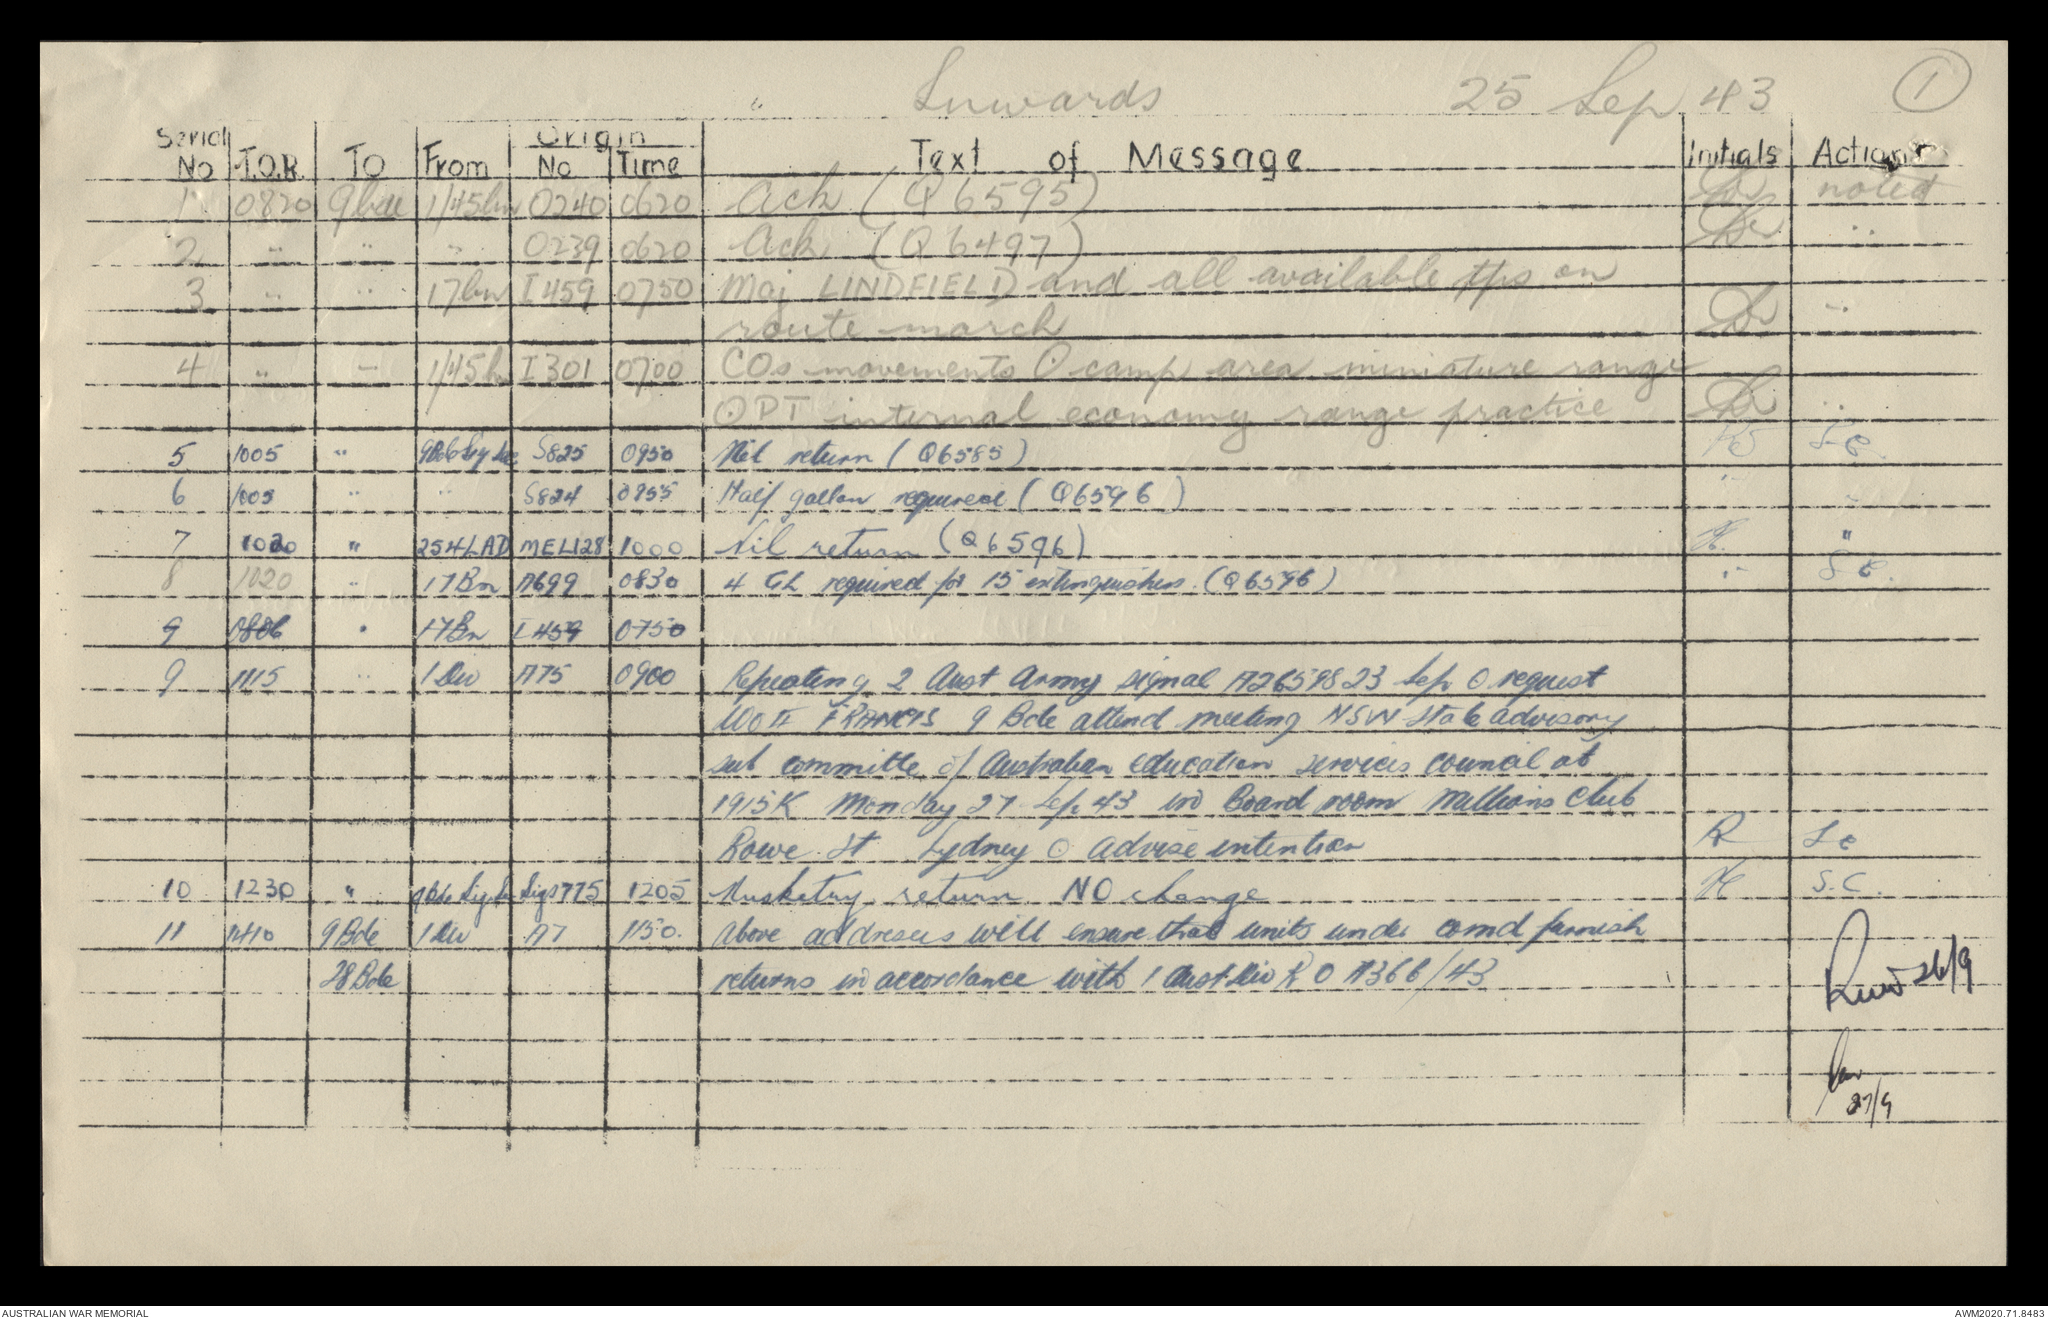 Inwards 25 Sep 43 1
Serial No T.O.R. TO From Origin No Time Text of Message Initials Action
1 0820 9 bde 1/45 bn O240 0620 Ack (Q6595) noted
2 " " " O239 0620 Ack (Q6497) "
3 " " 17 bn I459 0750 Maj LINDFIELD and all available tps on
route march "
4 " - 1/45 b I301 0700 COs movements O camp area miniature range
OPT internal economy range practice "
5 1005 " S825 0950 Nil return (Q6585)
6 1005 " " S824 0955 Half gallon required (Q6596) " "
7 1020 " 254 LAD MEL128 1000 Nil return (Q6596) "
8 1020 " 17 Bn A699 0830 4 GL required for 15 extinguishers. (Q6596) " S C.
9 17 Bn I459 0750
9 1115 " 1 Div A75 0900 Repeating 2 Aust Army signal A26598 23 Sep O request
WO II FRANCIS 9 Bde attend meeting NSW State advisory
sub committe of Australian education services council at
1915K Monday 27 Sep 43 in Board room Millions Club
Rowe St Sydney O advise intention R S C
10 1230 " 9 Bde Sig Sec Sigs 775 1205 Musketry return NO change S.C.
11 1410 9 Bde 1 Div A7 1150. above addresses will ensure that units under comd furnish
28 Bde returns in accordance with 1 Aust Div R O A366/43
26/9
27/9
AUSTRALIAN WAR MEMORIAL AWM2020.71.8483